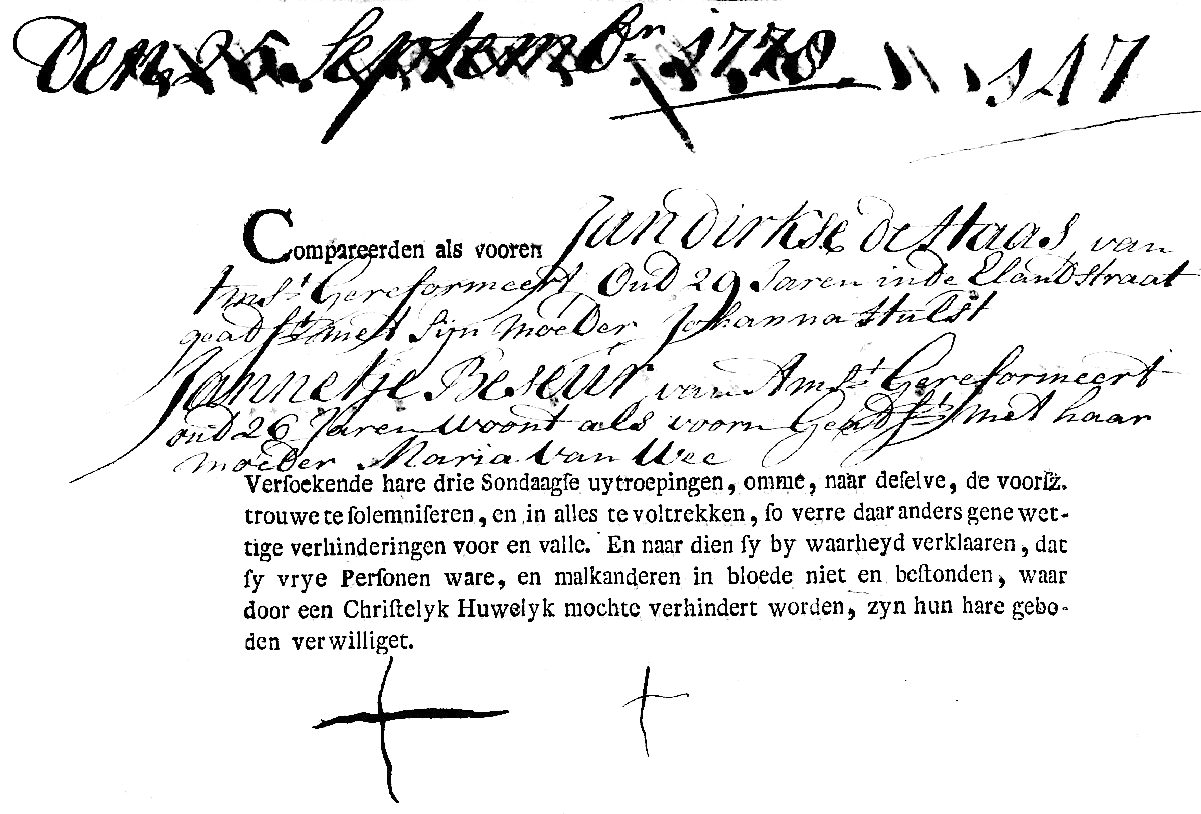 Den 25. Septemb:rn 1778. 147
Compareerden als vooren Jan dirkse de Haas van
Amst: Gereformeert Oud 29 Jaren in de Elandstraat
geadst: met sijn moeder Johanna Hulst
Jannetje Beseur van Amst: Gereformeert
oud 26 Jaren woont als voorn Geadst: met haar
moeder Maria Van Wee
Verſoekende hare drie Sondaagſe uytroepingen, omme, naar deſelve, de voorſz.
trouwe te ſolemniſeren, en in alles te voltrekken, ſo verre daar anders gene wet-
tige verhinderingen voor en valle. En naar dien ſy by waarheyd verklaaren, dat
ſy vrye Perſonen ware, en malkanderen in bloede niet en beſtonden, waar
door een Chriſtelyk Huwelyk mochte verhindert worden, zyn hun hare gebo-
den verwilliget.